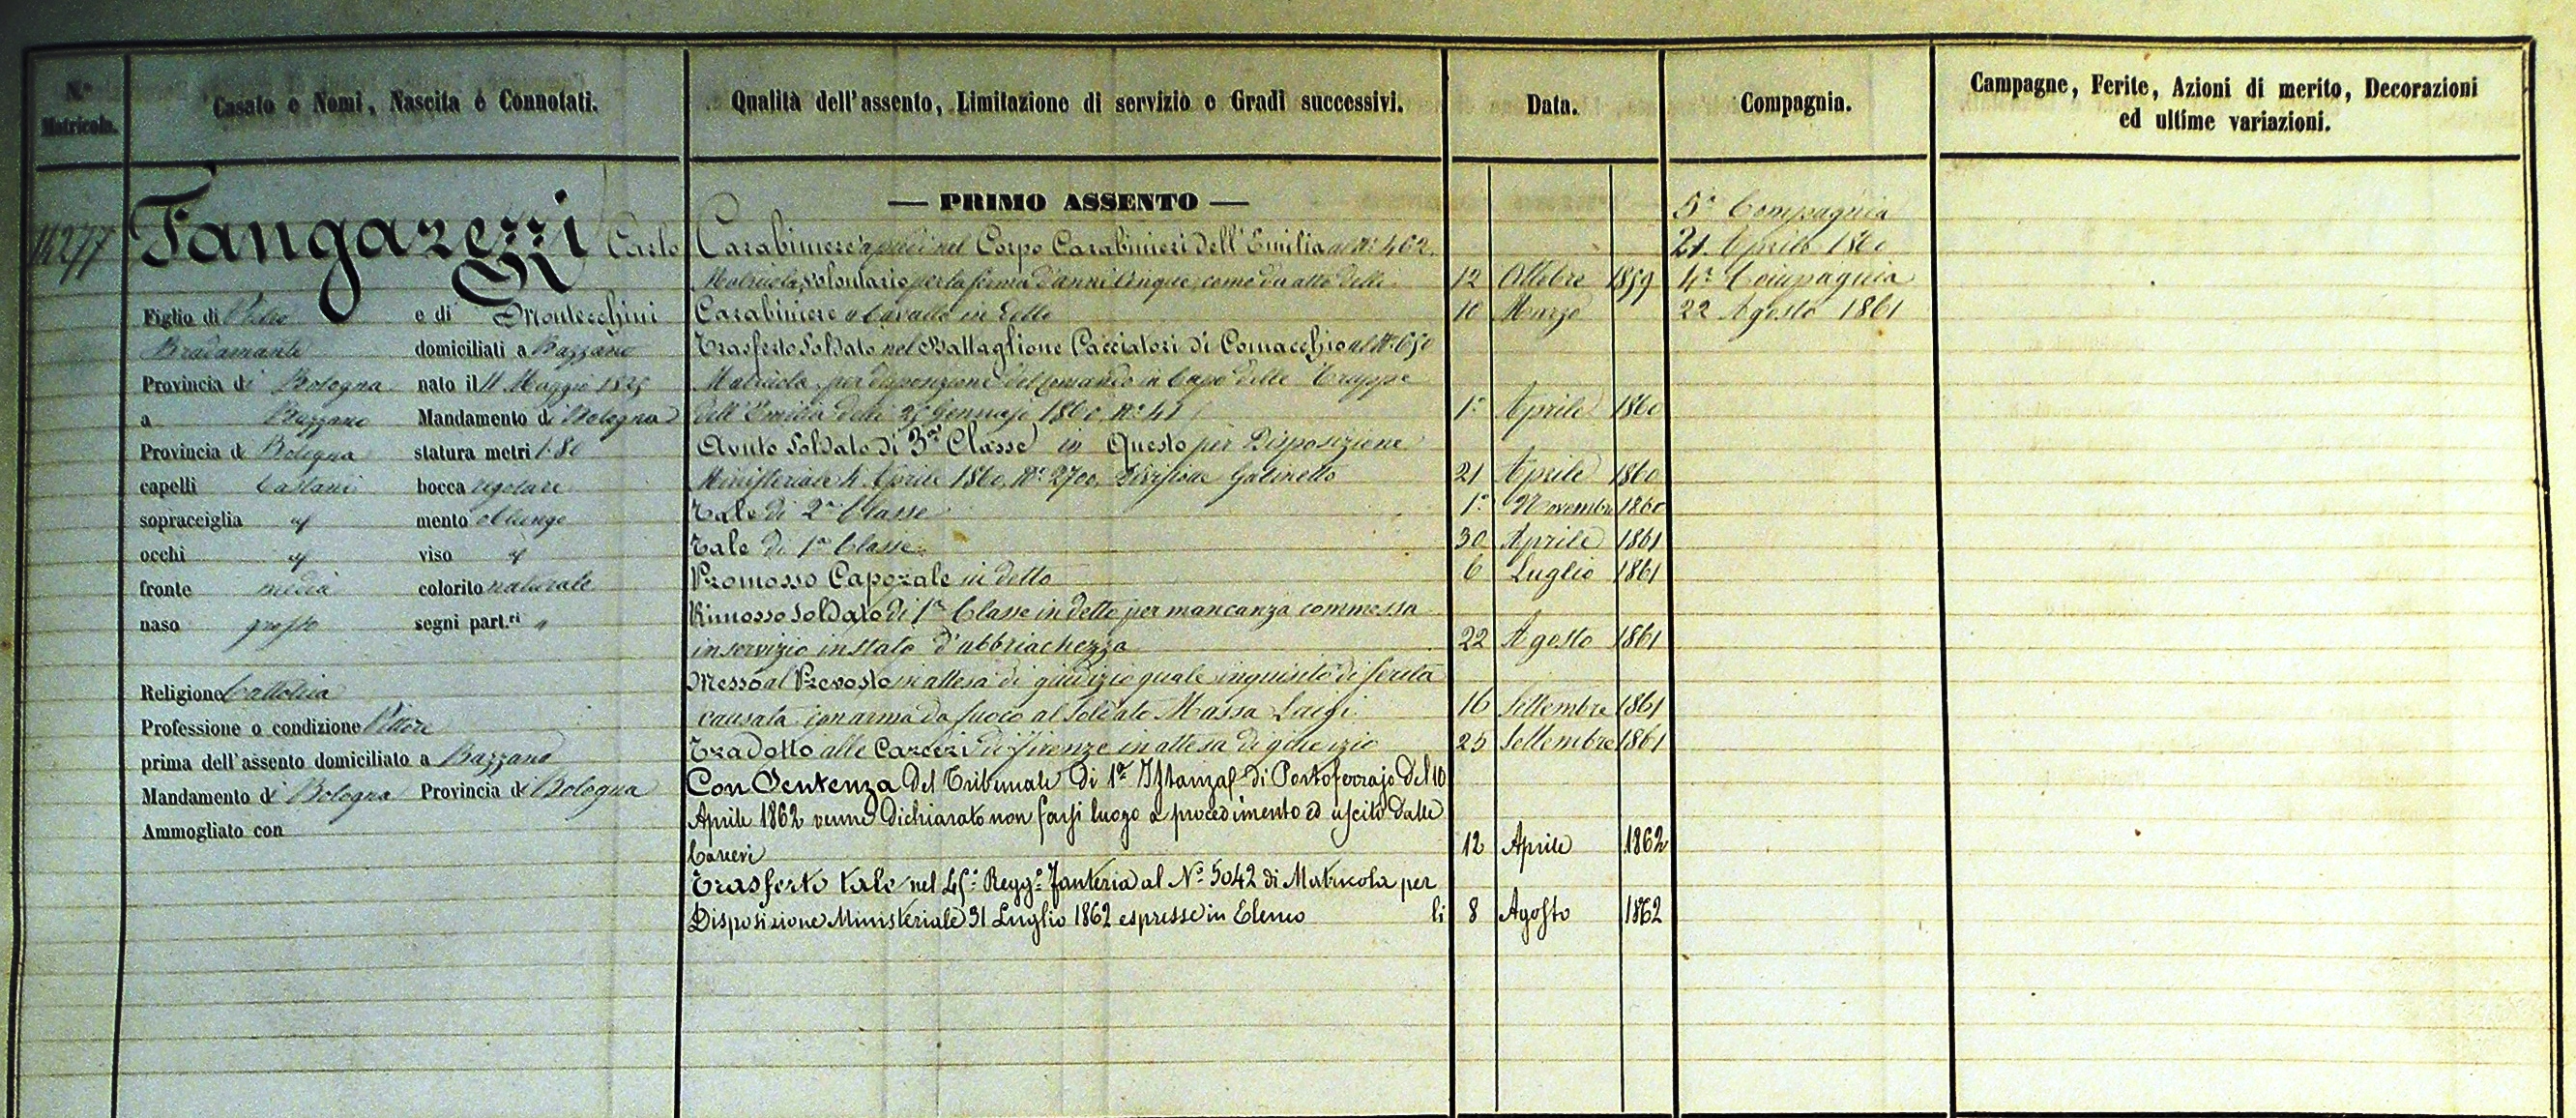 N.° Matricola.
Casato e Nomi, Nascita e Connotati.
Qualità dell'assento, Limitazione di servizio e Gradi successivi.
Data.
Compagnia.
Campagne, Ferite, Azioni di merito, Decorazioni
ed ultime variazioni.
14277
Fangarezzi Carlo
Figlio di Pietro e di Montecchini
Bradamante domiciliati a Bazzano
Provincia di Bologna nato il 11 Maggio 1825
a Bazzano Mandamento di Bologna
Provincia di Bologna statura metri 1.80
capelli Castani bocca regolare
sopracciglia id mento oblungo
occhi id viso id
fronte media colorito naturale
naso grosso segni part.ri "
Religione Cattolica
Professione o condizione Pittore
prima dell'assento domiciliato a Bazzano
Mandamento di Bologna Provincia di Bologna
Ammogliato con
— PRIMO ASSENTO —
Carabiniere a piedi nel Corpo Carabinieri dell'Emilia al N° 462.
Matricola, volontario per la ferma d'anni Cinque, come da atto delli 12 Ottobre 1859
Carabiniere a Cavallo in detto 10 Marzo
Trasferto Soldato nel Battaglione Cacciatori di Comacchio al N° 650
Matricola per disposizione del Comando in Capo delle Truppe
dell'Emilia delli 25 Gennajo 1860 N° 41 1° Aprile 1860
Avuto Soldato di 3a Classe in Questo per Disposizione
Ministeriale 4 Aprile 1860, N° 2700, Divisione Gabinetto 21 Aprile 1860
Tale di 2a Classe 1° Novembre 1860
Tale di 1a Classe 30 Aprile 1861
Promosso Caporale in detto 6 Luglio 1861
Rimosso Soldato di 1a Classe in detto per mancanza commessa
in servizio in stato d'ubbriachezza 22 Agosto 1861
Messo al Prevosto in attesa di giudizio quale inquisito di ferita
causata con arma da fuoco al Soldato Massa Luigi 16 Settembre 1861
Tradotto alle Carceri di Firenze in attesa di giudizio 25 Settembre 1861
Con Sentenza del Tribunale di 1a Istanza di Portoferrajo del 10
Aprile 1862 venne dichiarato non farsi luogo a procedimento ed uscito dalle
Carceri 12 Aprile 1862
Trasferto tale nel 45° Regg° Fanteria al N° 5042 di Matricola per
Disposizione Ministeriale 31 Luglio 1862 espresse in Elenco li 8 Agosto 1862
5a Compagnia
21 Aprile 1860
4a Compagnia
22 Agosto 1861